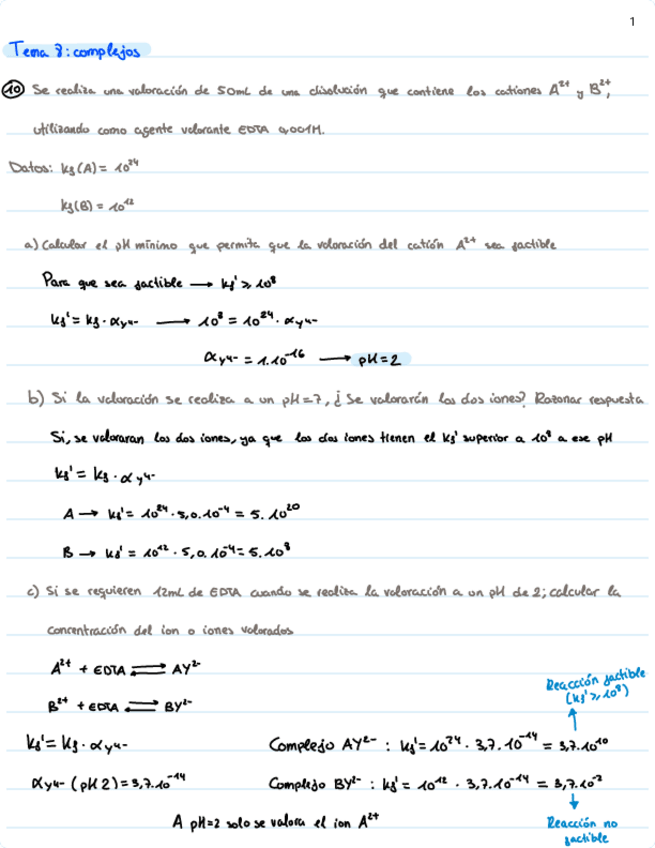 1
Tema 8: complejos
10 Se realiza una valoración de 50mL de una disolución que contiene los cationes A²⁺ y B²⁺,
utilizando como agente valorante EDTA 0,001M.
Datos: kf(A) = 10²⁴
kf(B) = 10¹²
a) Calcular el pH mínimo que permita que la valoración del catión A²⁺ sea factible
Para que sea factible → kf' ≥ 10⁸
kf' = kf · αy⁴⁻ → 10⁸ = 10²⁴ · αy⁴⁻
αy⁴⁻ = 1·10⁻¹⁶ → pH = 2
b) Si la valoración se realiza a un pH=7, ¿Se valorarán los dos iones? Razonar respuesta
Si, se valoraran los dos iones, ya que los dos iones tienen el kf' superior a 10⁸ a ese pH
kf' = kf · αy⁴⁻
A → kf' = 10²⁴ · 5,0·10⁻⁴ = 5·10²⁰
B → kf' = 10¹² · 5,0·10⁻⁴ = 5·10⁸
c) Si se requieren 12mL de EDTA cuando se realiza la valoración a un pH de 2; calcular la
concentración del ion o iones valorados
A²⁺ + EDTA ⇌ AY²⁻
B²⁺ + EDTA ⇌ BY²⁻
Reacción factible
(kf' ≥ 10⁸)
kf' = kf · αy⁴⁻ Complejo AY²⁻ : kf' = 10²⁴ · 3,7·10⁻¹⁴ = 3,7·10¹⁰
αy⁴⁻ (pH 2) = 3,7·10⁻¹⁴ Complejo BY²⁻ : kf' = 10¹² · 3,7·10⁻¹⁴ = 3,7·10⁻²
A pH=2 solo se valora el ion A²⁺
Reacción no
factible